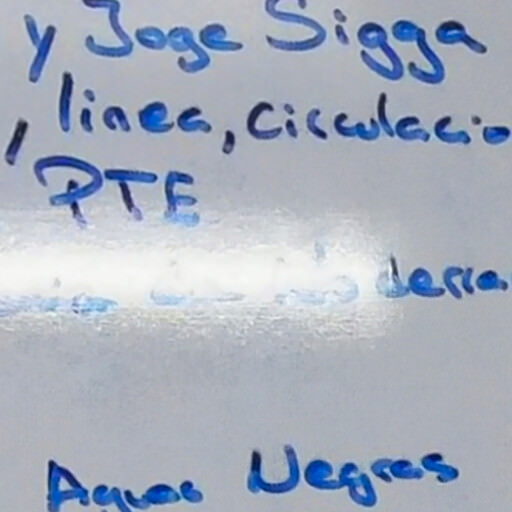 y Joge Sigga
, linea, Circulacio
PTE
derra
Aguas Negras